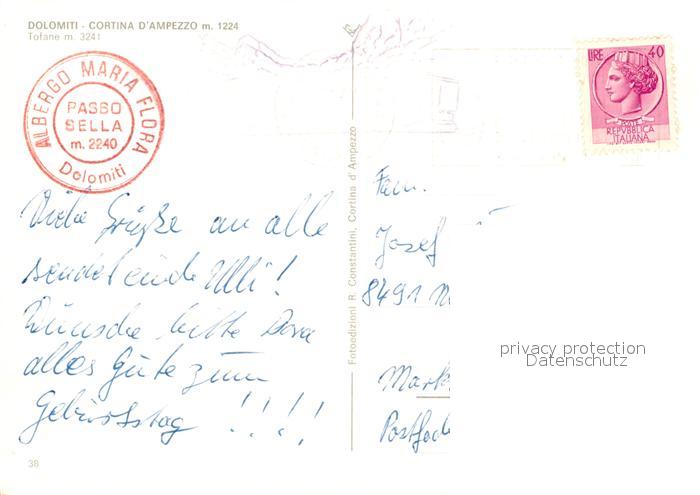 DOLOMITI - CORTINA D'AMPEZZO m. 1224
Tofane m. 3241
ALBERGO MARIA FLORA
PASSO
SELLA
m. 2240
Dolomiti
LIRE 40
POSTE
REPVBBLICA
ITALIANA
Viele Grüße an alle
sendet eude Ulli!
Wünsche bitte Dora
alles Gute zum
Geburtstag !!!!
Fotoedizioni R. Constantini, Cortina d'Ampezzo
Fam.
Josef
8491
Mark
Postfach
privacy protection
Datenschutz
38